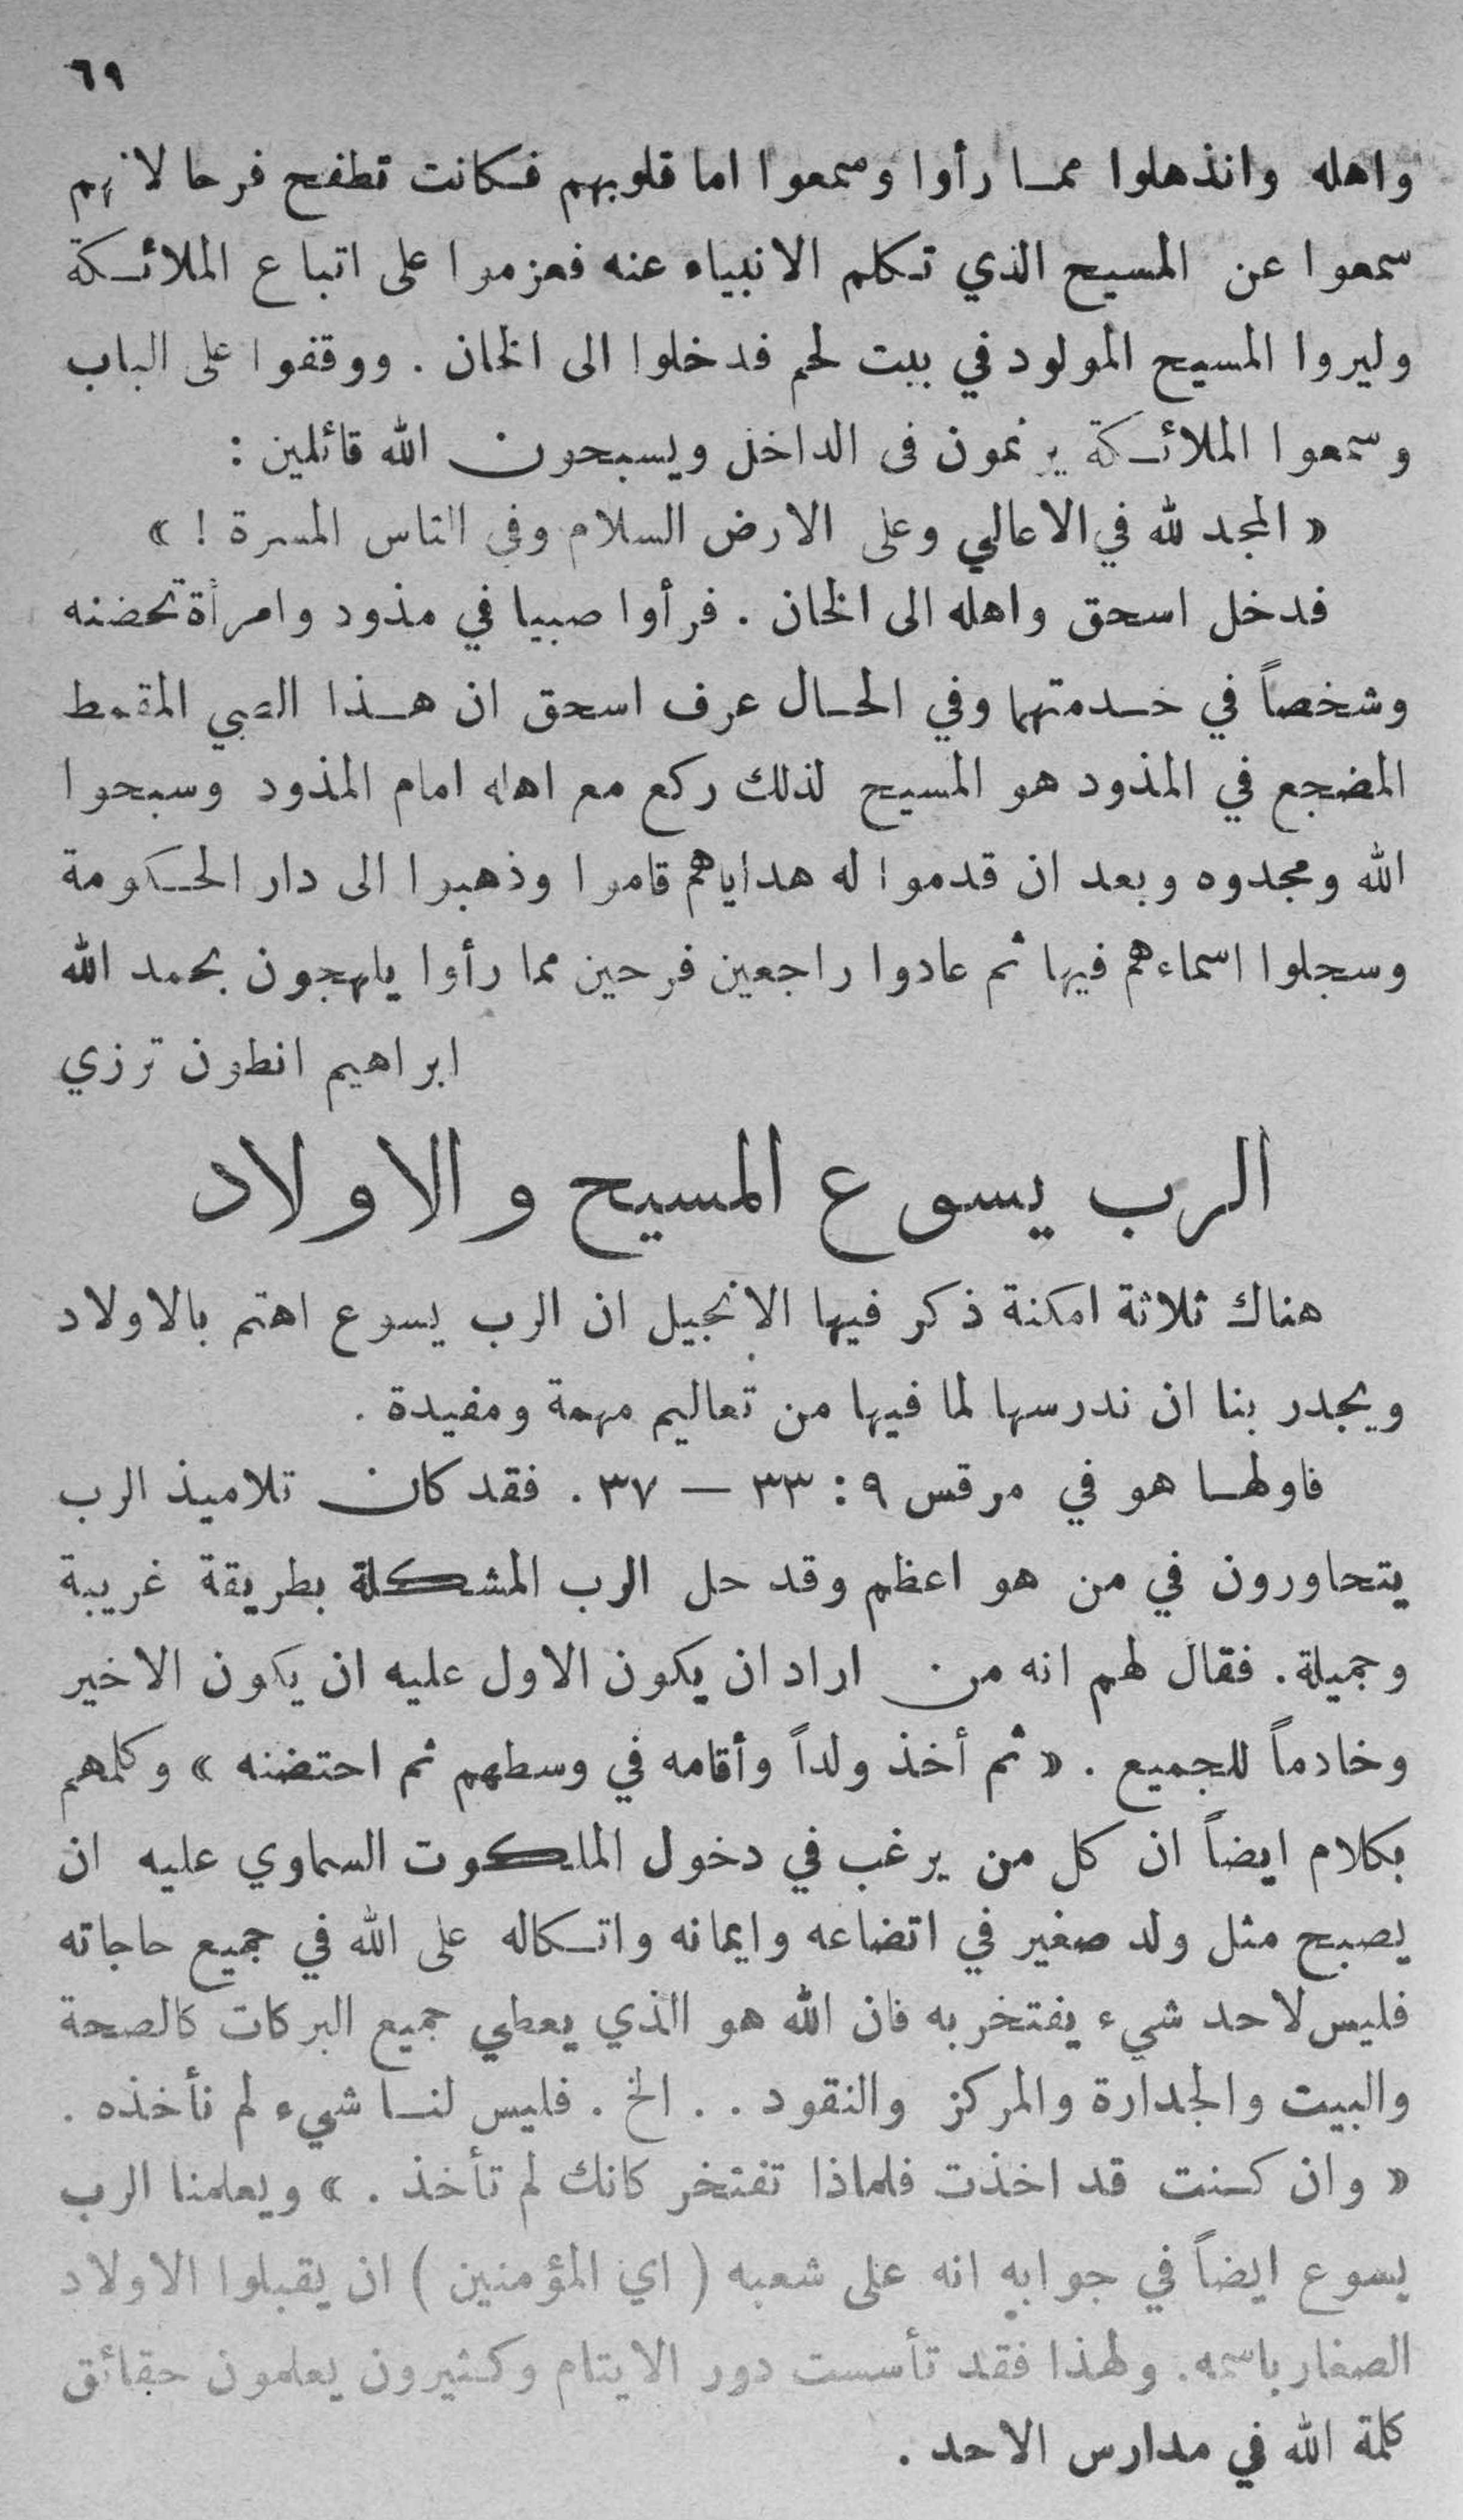 ٦٩
واهله وانذهلوا ممـا رأوا وسمعوا اما قلوبهم فـكانت تطفح فرحا لانهم
سمعوا عن المسيح الذي تـكلم الانبياء عنه فعزموا على اتباع الملائـكة
وليروا المسيح المولود في بيت لحم فدخلوا الى الخان . ووقفوا على الباب
وسمعوا الملائـكة يرنمون فى الداخل ويسبحون الله قائلين :
« المجد لله في الاعالي وعلى الارض السلام وفي الناس المسرة ! »
فدخل اسحق واهله الى الخان . فرأوا صبيا في مذود وامرأة تحضنه
وشخصاً في خـدمتهما وفي الحـال عرف اسحق ان هـذا الصبي المقمط
المضجع في المذود هو المسيح لذلك ركع مع اهله امام المذود وسبحوا
الله ومجدوه وبعد ان قدموا له هداياهم قاموا وذهبوا الى دار الحـكومة
وسجلوا اسماءهم فيها ثم عادوا راجعين فرحين مما رأوا يلهجون بحمد الله
ابراهيم انطون ترزي
الرب يسوع المسيح والاولاد
هناك ثلاثة امكنة ذكر فيها الانجيل ان الرب يسوع اهتم بالاولاد
ويجدر بنا ان ندرسها لما فيها من تعاليم مهمة ومفيدة .
فاولهـا هو في مرقس ٩ : ٣٣ — ٣٧ . فقد كان تلاميذ الرب
يتحاورون في من هو اعظم وقد حل الرب المشكلة بطريقة غريبة
وجميلة . فقال لهم انه من اراد ان يكون الاول عليه ان يكون الاخير
وخادماً للجميع . « ثم أخذ ولداً وأقامه في وسطهم ثم احتضنه » وكلمهم
بكلام ايضاً ان كل من يرغب في دخول الملكوت السماوي عليه ان
يصبح مثل ولد صغير في اتضاعه وايمانه واتـكاله على الله في جميع حاجاته
فليس لاحد شيء يفتخر به فان الله هو الذي يعطي جميع البركات كالصحة
والبيت والجدارة والمركز والنقود . . الخ . فليس لنـا شيء لم نأخذه .
« وان كـنت قد اخذت فلماذا تفتخر كانك لم تأخذ . » ويعلمنا الرب
يسوع ايضاً في جوابه انه على شعبه ( اي المؤمنين ) ان يقبلوا الاولاد
الصغار باسمه . ولهذا فقد تأسست دور الايتام وكثيرون يعلمون حقائق
كلمة الله في مدارس الاحد .